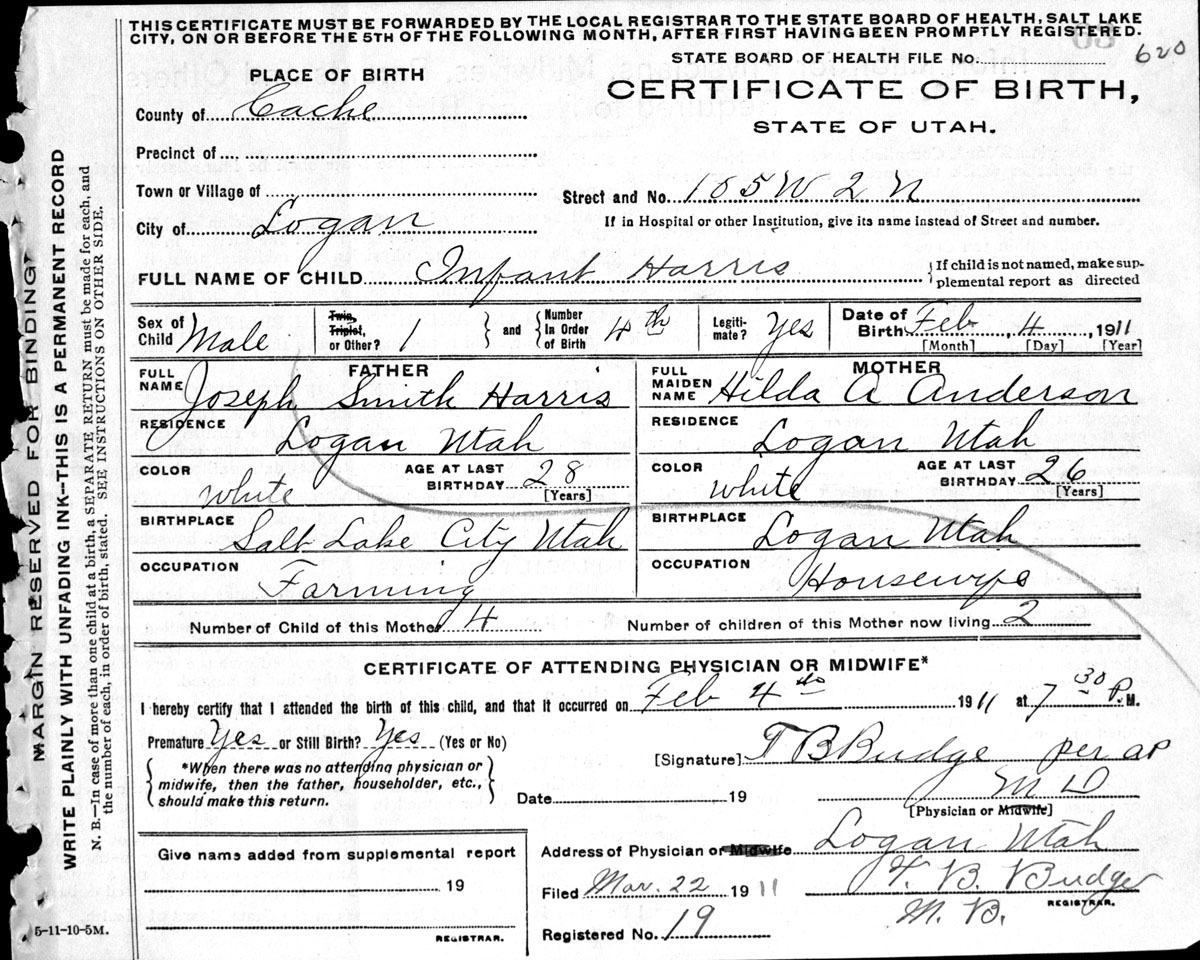 THIS CERTIFICATE MUST BE FORWARDED BY THE LOCAL REGISTRAR TO THE STATE BOARD OF HEALTH, SALT LAKE
CITY, ON OR BEFORE THE 5TH OF THE FOLLOWING MONTH, AFTER FIRST HAVING BEEN PROMPTLY REGISTERED.
STATE BOARD OF HEALTH FILE No. 620
PLACE OF BIRTH
CERTIFICATE OF BIRTH,
STATE OF UTAH.
County of Cache
Precinct of
Town or Village of
Street and No. 105 W 2 N
City of Logan
If in Hospital or other Institution, give its name instead of Street and number.
FULL NAME OF CHILD Infant Harris
If child is not named, make sup-
plemental report as directed
Sex of Child Male
Twin, Triplet, or Other? 1
and Number In Order of Birth 4th
Legiti-mate? Yes
Date of Birth Feb 4 1911
[Month] [Day] [Year]
FATHER
FULL NAME Joseph Smith Harris
MOTHER
FULL MAIDEN NAME Hilda A Anderson
RESIDENCE Logan Utah
RESIDENCE Logan Utah
COLOR White AGE AT LAST BIRTHDAY 28 [Years]
COLOR White AGE AT LAST BIRTHDAY 26 [Years]
BIRTHPLACE Salt Lake City Utah
BIRTHPLACE Logan Utah
OCCUPATION Farming
OCCUPATION Housewife
Number of Child of this Mother 4 Number of children of this Mother now living 2
CERTIFICATE OF ATTENDING PHYSICIAN OR MIDWIFE*
I hereby certify that I attended the birth of this child, and that it occurred on Feb 4th 1911 at 7 30 P. M.
Premature Yes or Still Birth? Yes (Yes or No)
*When there was no attending physician or
midwife, then the father, householder, etc.,
should make this return.
[Signature] T B Budge per ap
M D
Date 19
[Physician or Midwife]
Give name added from supplemental report
19
REGISTRAR.
Address of Physician or Midwife Logan Utah
Filed Mar. 22 1911 T. B. Budge
REGISTRAR.
Registered No. 19
5-11-10-5M.
MARGIN RESERVED FOR BINDING
WRITE PLAINLY WITH UNFADING INK—THIS IS A PERMANENT RECORD
N. B.—In case of more than one child at a birth, a SEPARATE RETURN must be made for each, and
the number of each, in order of birth, stated. SEE INSTRUCTIONS ON OTHER SIDE.